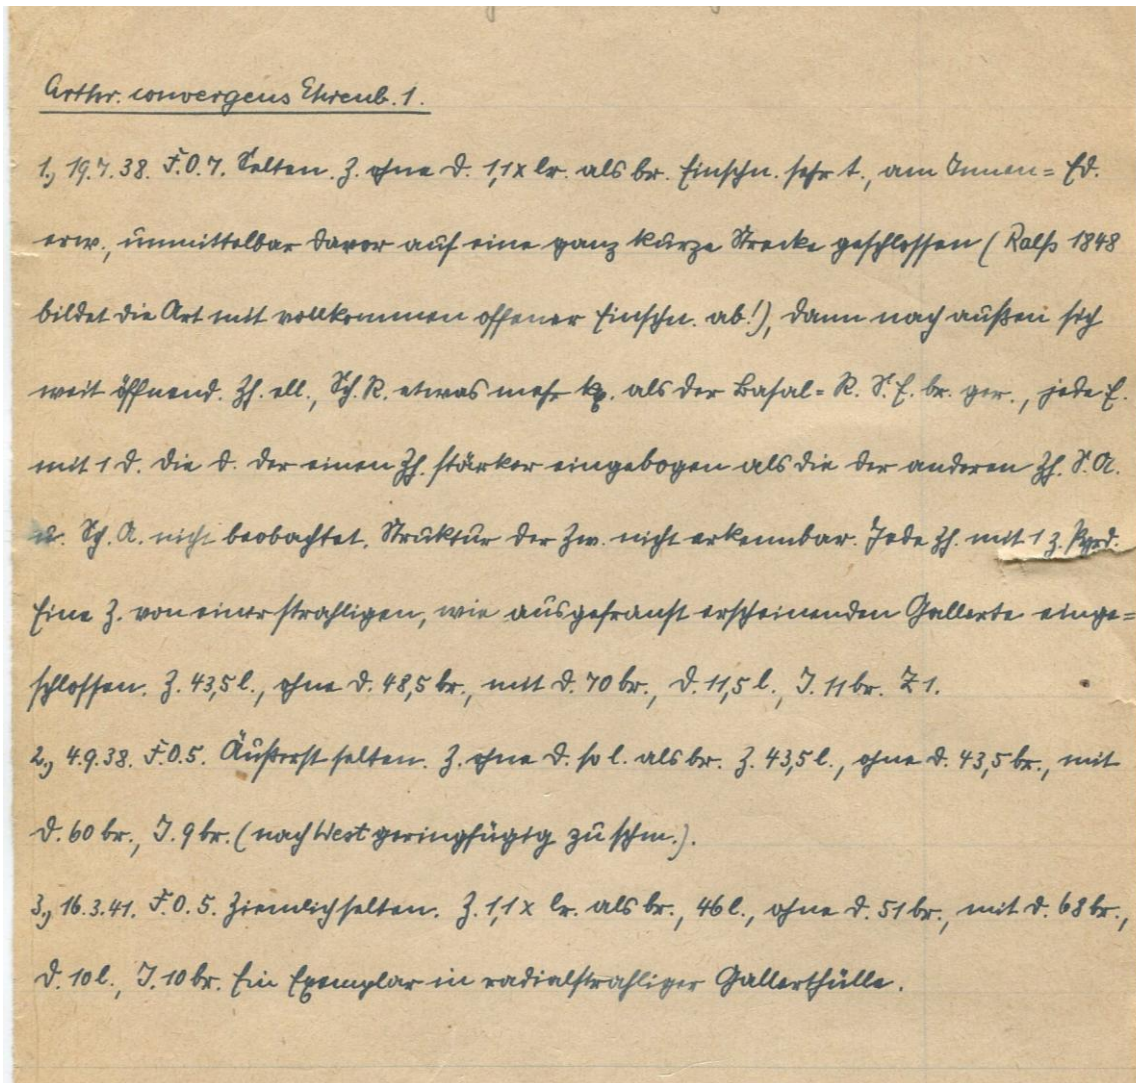 Arthr. convergens Ehrenb. 1.
1., 19.7.38. F.O.7. Selten. Z. ohne D. 1,1x br. als br. Einschn. sehr t., am Innen=Ed.
erw., unmittelbar davor auf eine ganz kurze Strecke geschlossen (Ralfs 1848
bildet die Art mit vollkommen offener Einschn. ab!), dann nach außen sich
weit öffnend. Zh. ell., Sch.R. etwas mehr als der Basal=R. S.E. br. ger., jede E.
mit 1 D. Die D. der einen Zh. stärker eingebogen als die der anderen Zh. S.A.
u. Sch.A. nicht beobachtet. Struktur der Zw. nicht erkennbar. Jede Zh. mit 1 z. Pyrd.
Eine Z. von einer strahligen, wie ausgefranst erscheinenden Gallerte einge=
schlossen. Z. 43,5 l., ohne D. 48,5 br., mit D. 70 br., D. 11,5 l., I. 11 br. Z 1.
2., 4.9.38. F.O.5. Äußerst selten. Z. ohne D. so l. als br. Z. 43,5 l., ohne D. 43,5 br., mit
D. 60 br., I. 9 br. (nach West geringfügig zu schm.).
3., 16.3.41. F.O.5. Ziemlich selten. Z. 1,1x lr. als br., 46 l., ohne D. 51 br., mit D. 68 br.,
D. 10 l., I. 10 br. Ein Exemplar in radialstrahliger Gallerthülle.